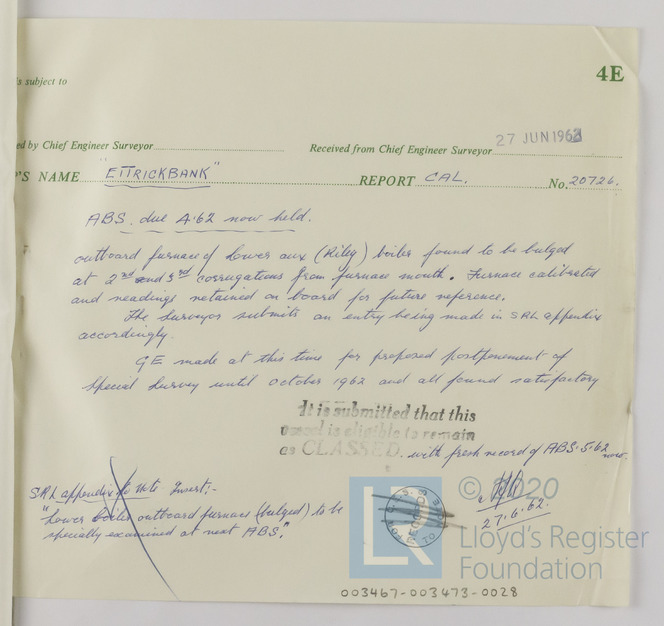 is subject to
4E
ed by Chief Engineer Surveyor
Received from Chief Engineer Surveyor
27 JUN 1962
'S NAME "ETTRICKBANK" REPORT CAL. No. 20726.
ABS. due 4.62 now held.
outboard furnace of lower aux (Riley) boiler found to be bulged
at 2nd and 3rd corrugations from furnace mouth. Furnace calibrated
7.
and readings retained on board for future reference.
The Surveyor submits an entry being made in SRL appendix
accordingly.
GE made at this time for proposed postponement of
Special Survey until October 1962 and all found satisfactory
It is submitted that this
vessel is eligible to remain
as CLASSED. with fresh record of ABS.5.62 now.
SRL appendix to note Insert:-
"Lower boiler outboard furnace (bulged) to be
specially examined at next ABS."
27.6.62.
© 2020
LR
Lloyd's Register
Foundation
003467-003473-0028